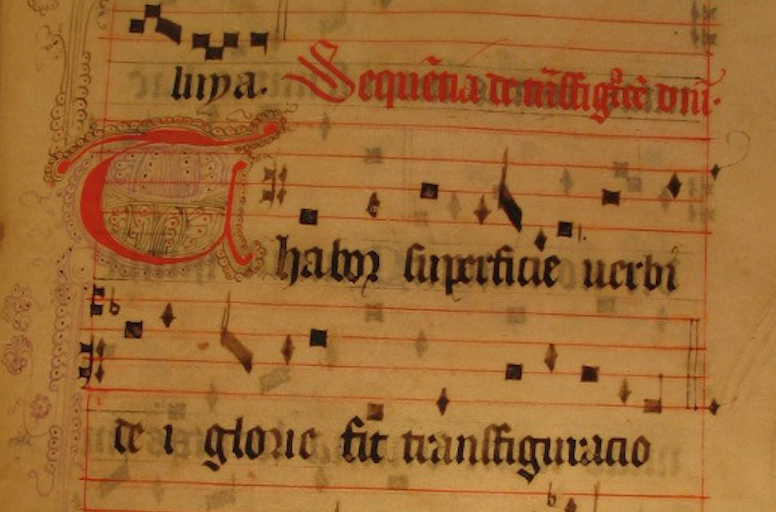 luya. Sequẽtia de trãsfigᵃciõe dñi.
Thabor superficiē uerbi
de i glorie fit transfiguracio